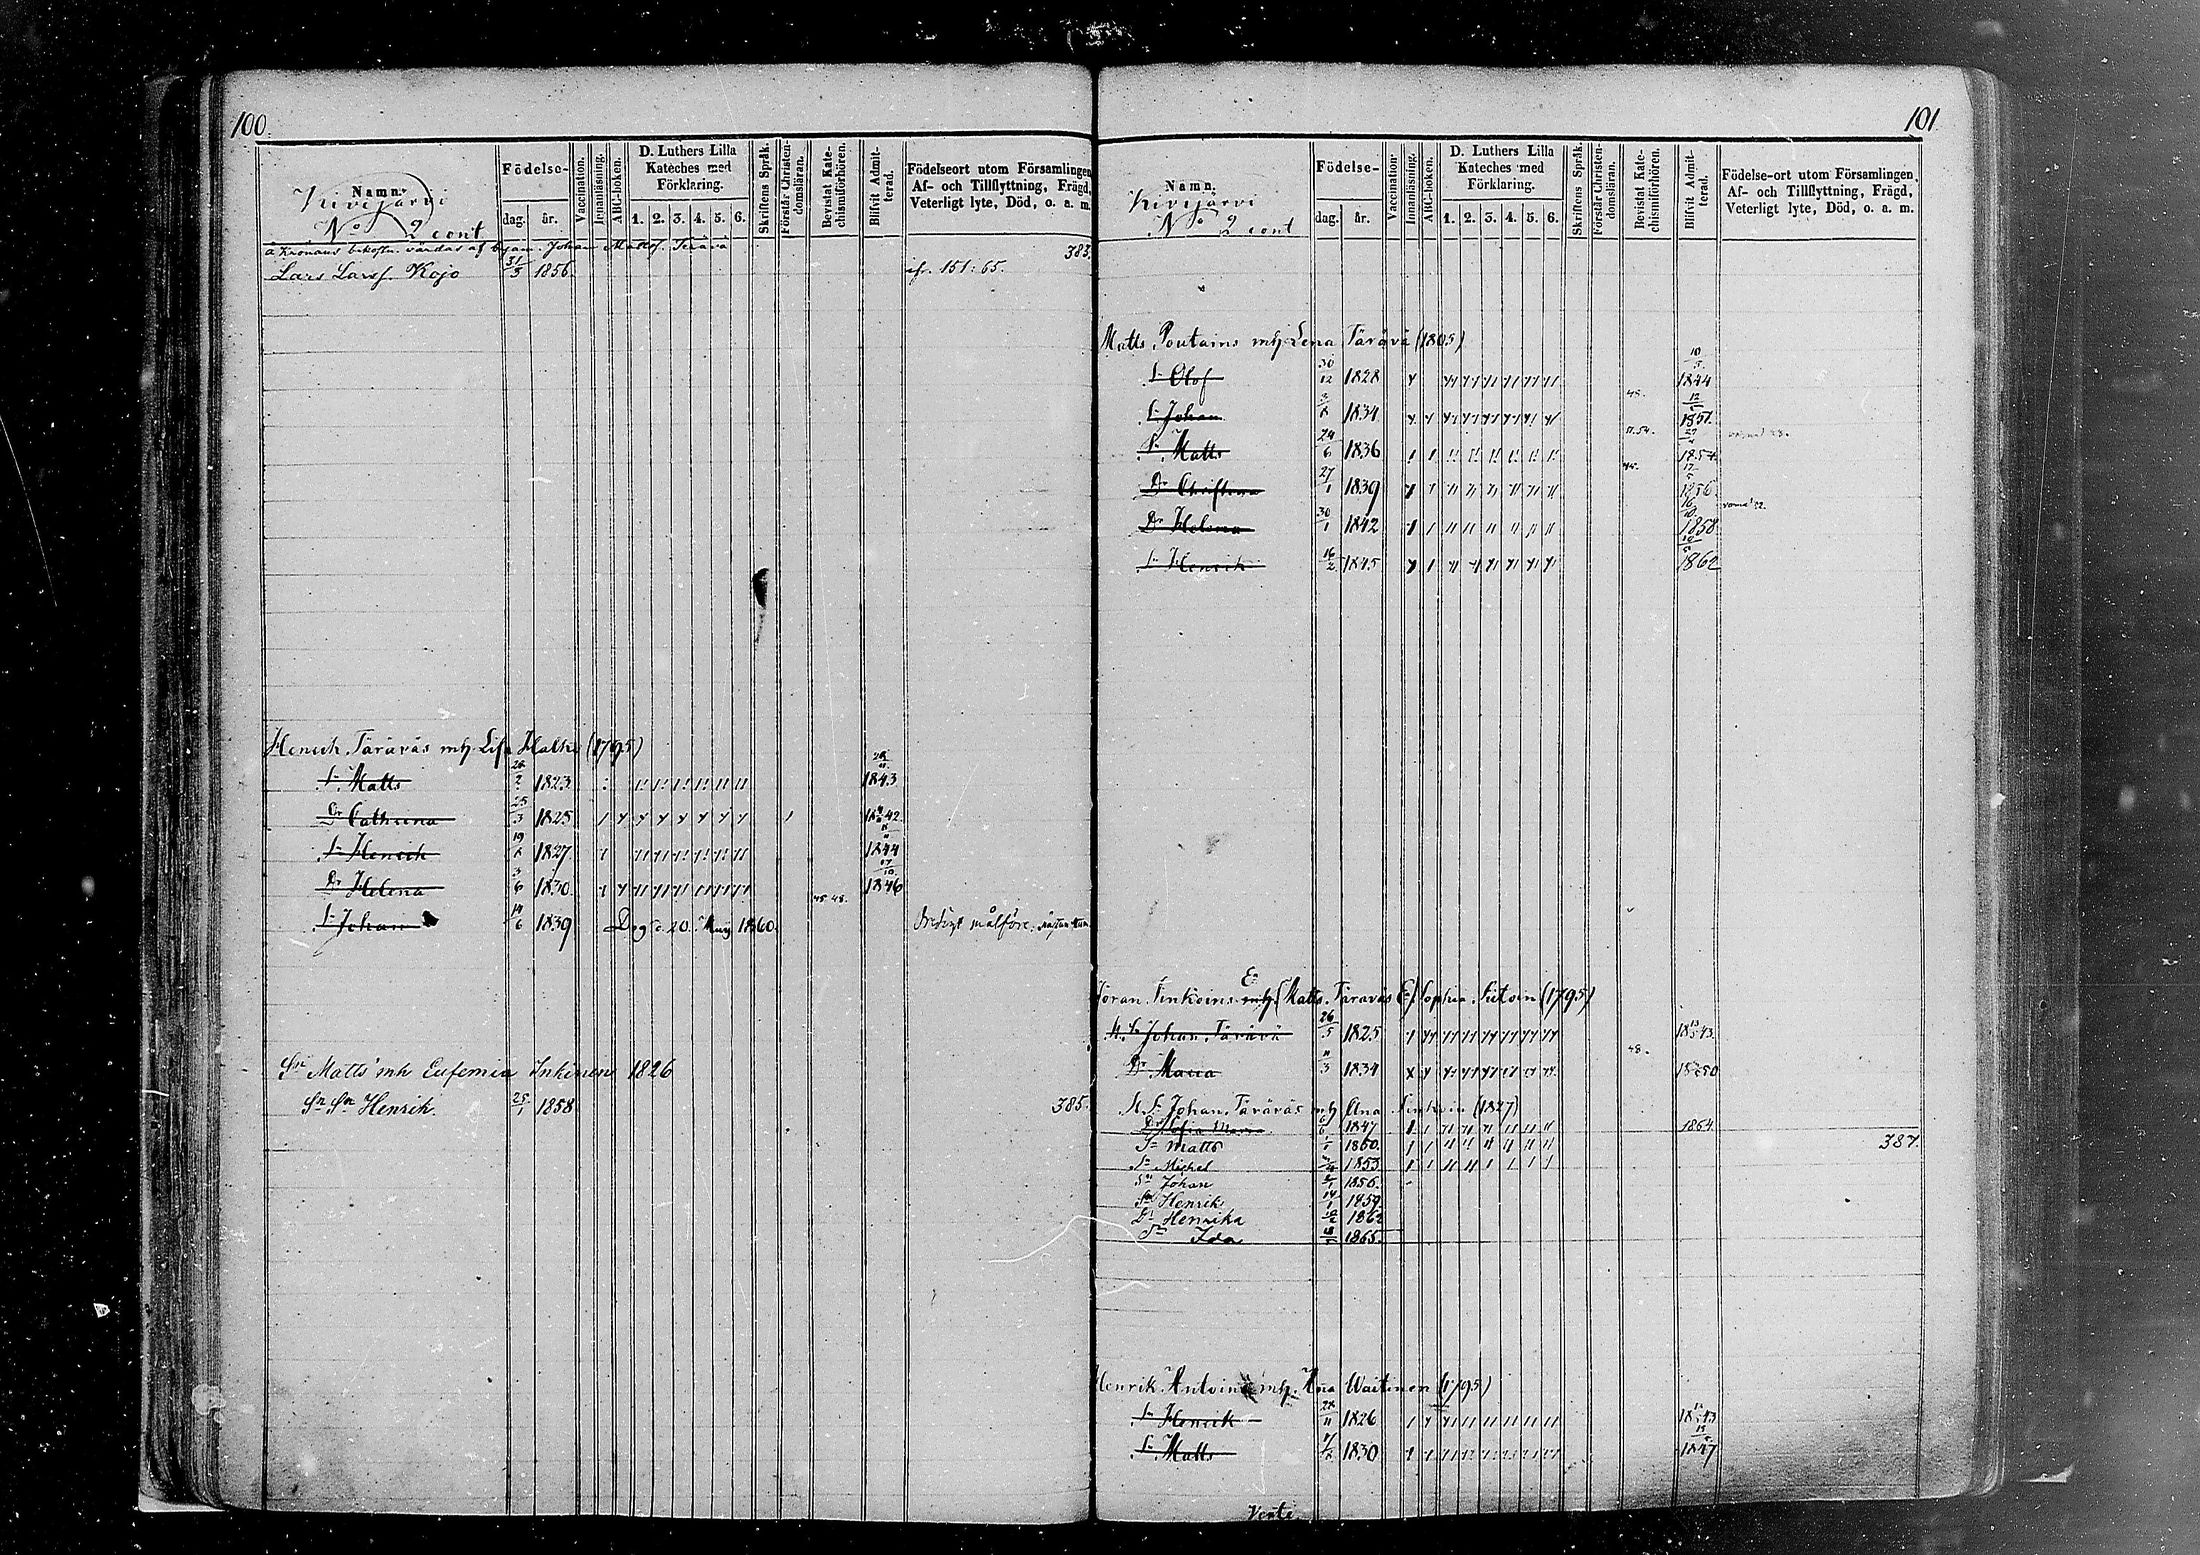 100.
Namn.
Kivijärvi
No 2 cont
Födelse-
dag. år.
Vaccination.
Innanläsning.
ABC-boken.
D. Luthers Lilla
Kateches med
Förklaring.
1. 2. 3. 4. 5. 6.
Skriftens Språk.
Förstår Christen-
domsläran.
Bevistat Kate-
chismiförhören.
Blifvit Admit-
terad.
Födelseort utom Församlingen
Af- och Tillflyttning, Frägd,
Veterligt lyte, Död, o. a. m.
å Kronans bekostn. vårdas af Johan Matts. Tärävä
383.
Lars Larss. Kojo 31/3 1856. 151:65.
Henrich Täräväs mh Lisa Halko (1795)
Sn Matts 1823 1843
Dr Cathrina 25/3 1825 1842
Sn Henrich 19/8 1827 1844
Dr Helena 3/6 1830 17/10 1846
45 48.
Sn Johan 14/6 1839 Dog d. 20 Maij 1860
Sn Matts mh Eufemia Inkinen 1826
Sn Sn Henrik 25/1 1858
385.
101.
Namn.
Kivijärvi
No 2 cont
Födelse-
dag. år.
Vaccination.
Innanläsning.
ABC-boken.
D. Luthers Lilla
Kateches med
Förklaring.
1. 2. 3. 4. 5. 6.
Skriftens Språk.
Förstår Christen-
domsläran.
Bevistat Kate-
chismiförhören.
Blifvit Admit-
terad.
Födelse-ort utom Församlingen,
Af- och Tillflyttning, Frägd,
Veterligt lyte, Död, o. a. m.
Matts Poutains mh Lena Tärävä (1805)
Sn Olof 30/12 1828 1844
Sn Johan 1834 45. 1851.
Sn Matts 24/6 1836 51.54. 1854
Dr Christina 27/1 1839 45. 1856
Dr Helena 30/1 1842 16/10 1858
Sn Henrich 16/2 1845 1862
Göran Sinkoins mh En (Matts Täräväs E) Sophia Piitoin (1795)
M. Sn Johan Tärävä 26/5 1825 1843.
Dr Maria 11/3 1834 48. 1850
M. Sn Johan Täräväs mh Ana Sinkoin (1827)
Dr Sofia Maria 1847 1864
Sn Matts 1860.
387.
Sn Michel 1853
Sn Johan 1856.
Sn Henrik 14/1 1859
Dr Henrika 1862
Ida 1865.
Henrik Antoins mh. Ana Waitinen (1795)
Sn Henrik 28/11 1826 1843
Sn Matts 1830 1847
Verte